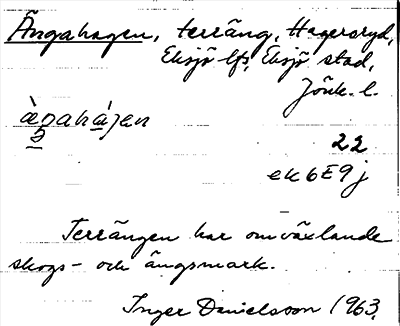 Ängahagen, terräng, Hagersryd,
Eksjö lfs, Eksjö stad,
Jönk. l.
22
ek 6E9j
Terrängen har omväxlande
skogs- och ängsmark.
Inger Danielsson 1963.